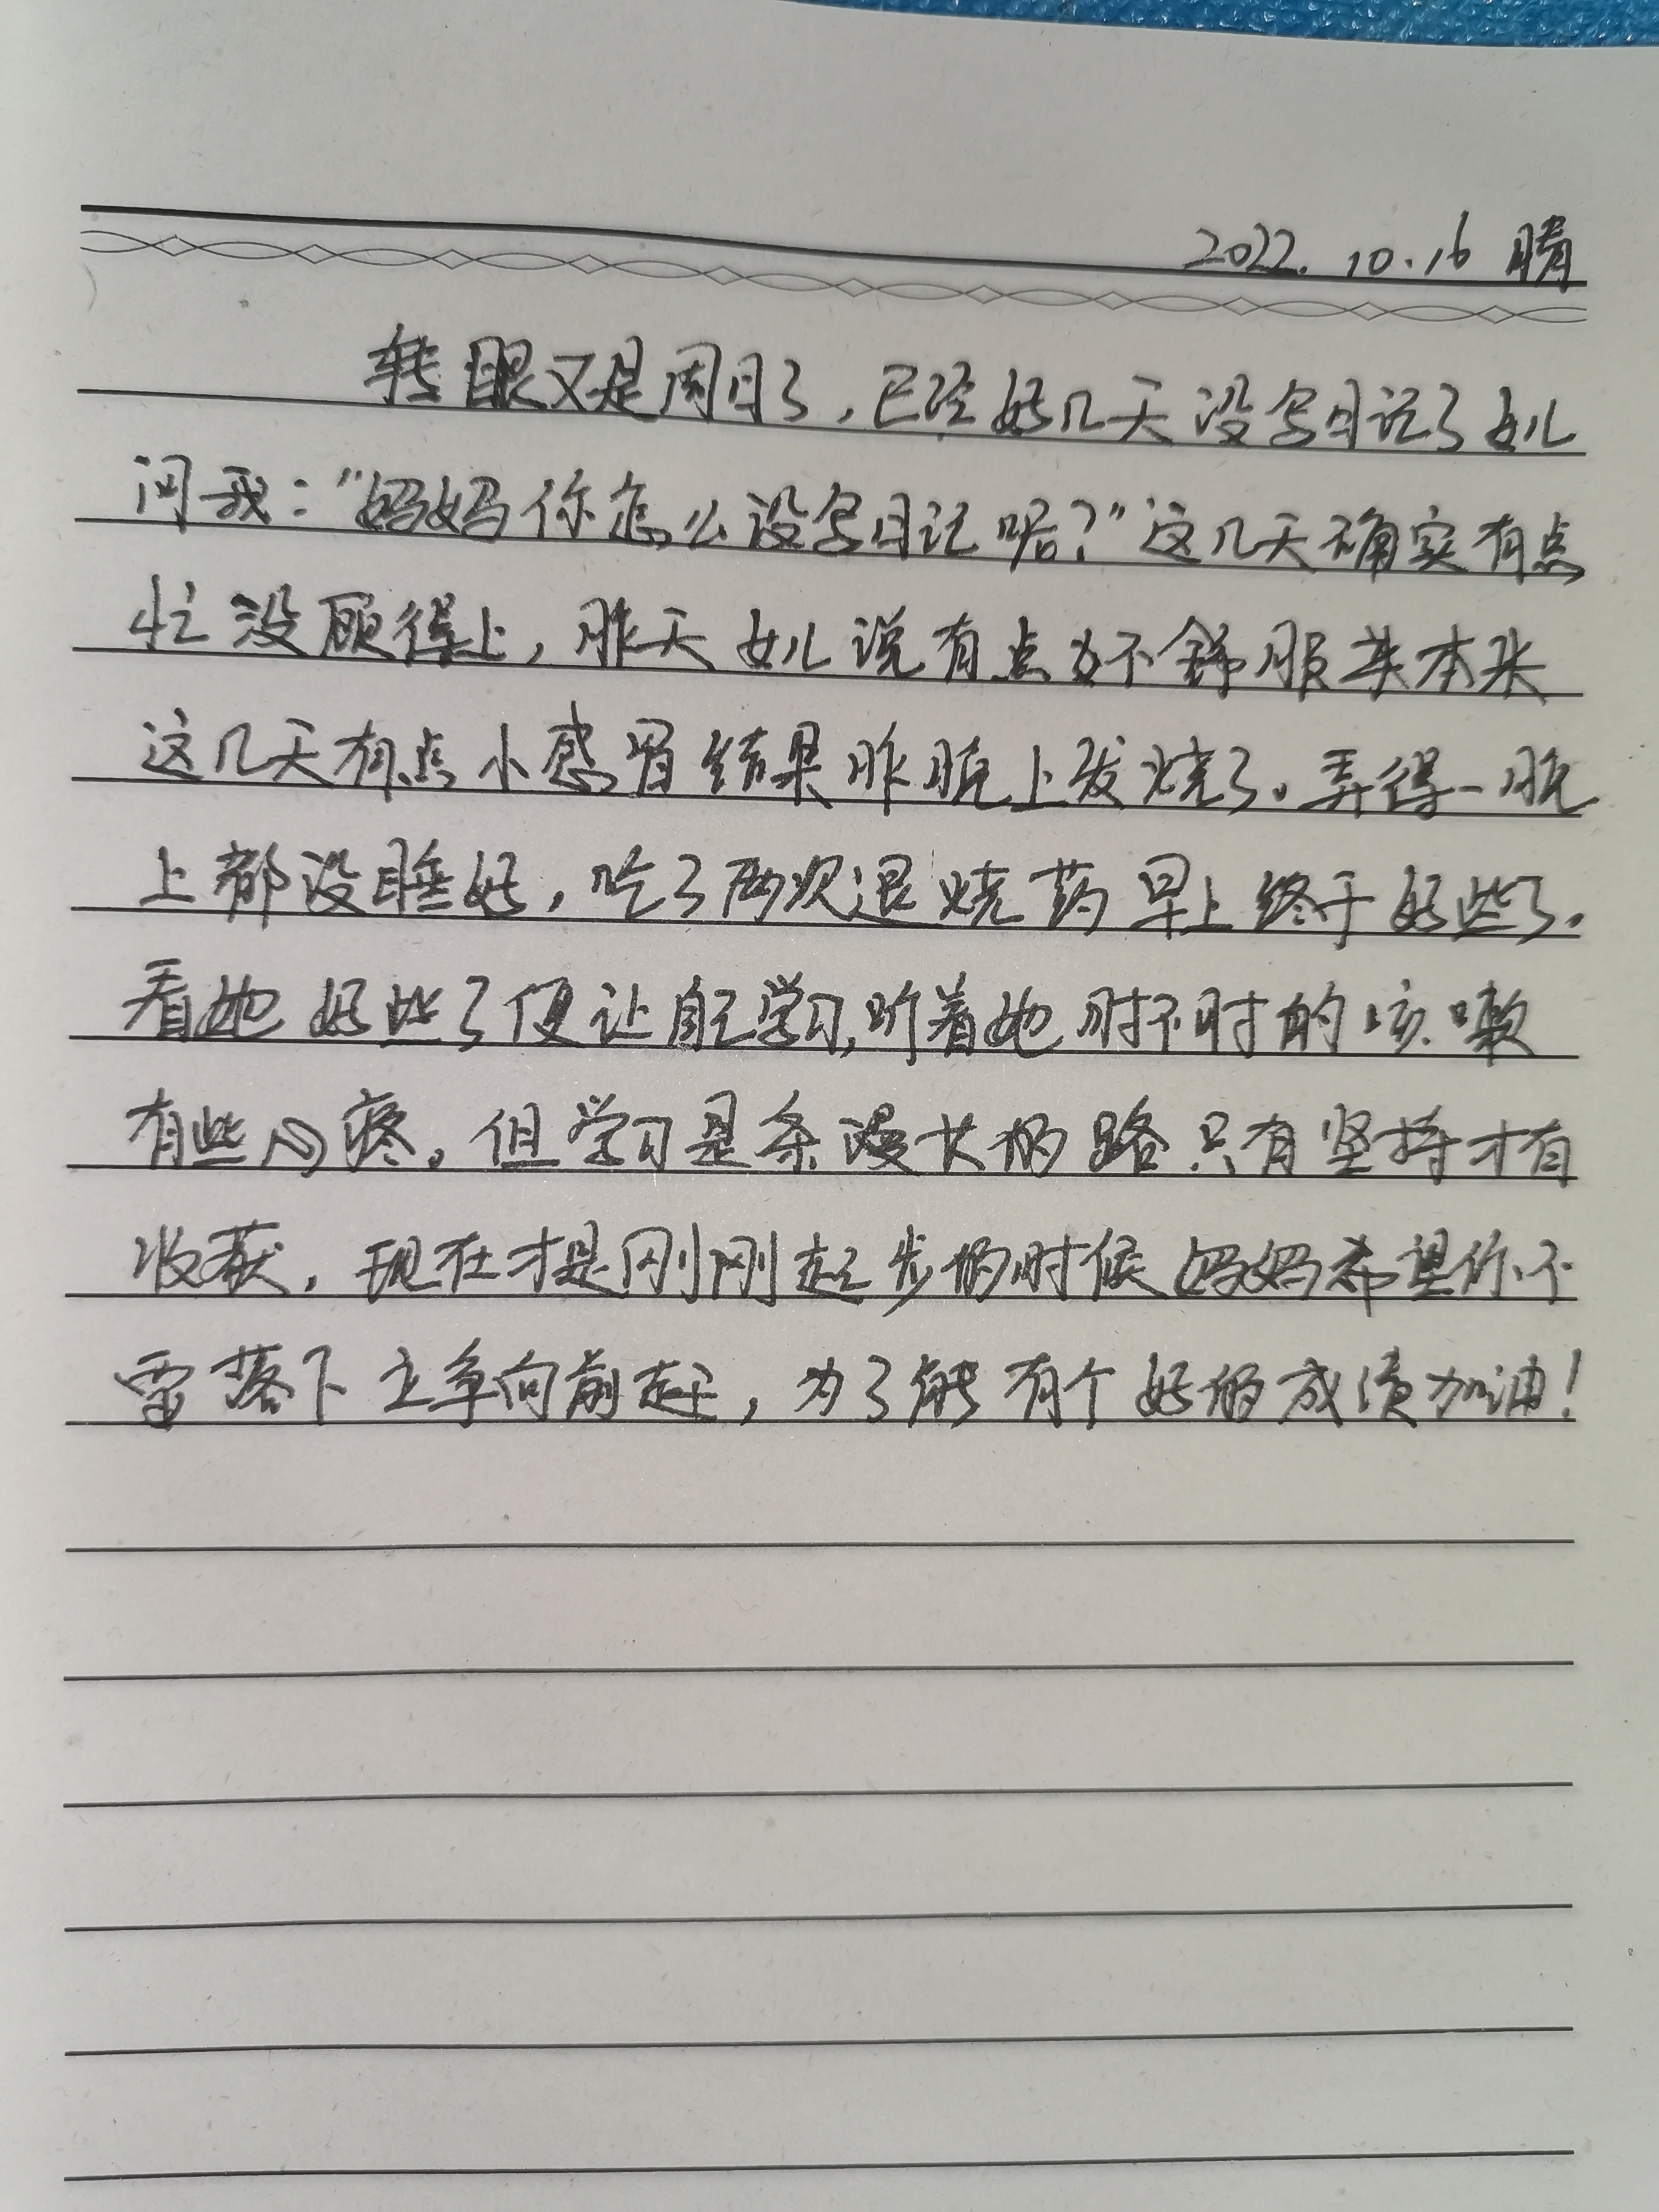 2022.10.16 晴
转眼又是周日了,已经好几天没写日记了女儿
问我:“妈妈你怎么没写日记呢?”这几天确实有点
忙没顾得上,昨天女儿说有点不舒服其本来
这几天有点小感冒结果昨晚上发烧了。弄得一晚
上都没睡好,吃了两次退烧药早上终于好些了.
看她好些了便让自己学习,听着她时不时的咳嗽
有些心疼。但学习是条漫长的路只有坚持才有
收获,现在才是刚刚起步的时候妈妈希望你不
要落下主争向前赶,为了能有个好的成绩加油!